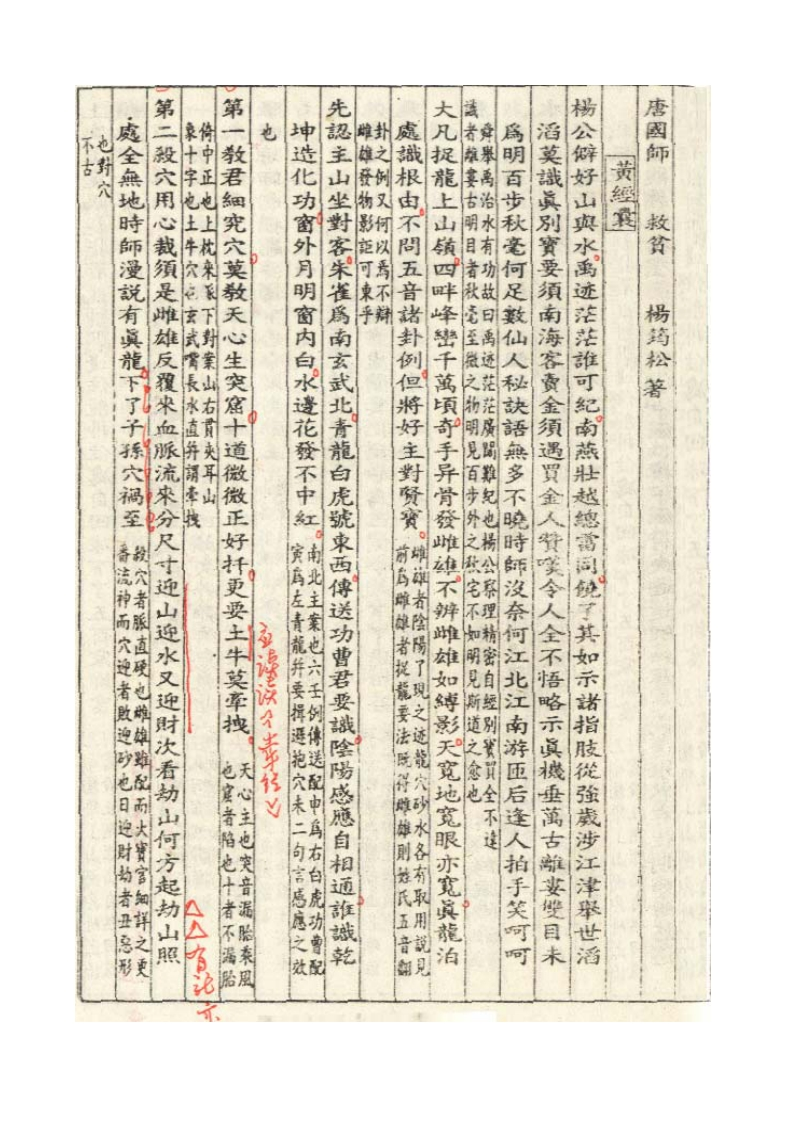 唐國師 救貧 楊筠松著
黃經囊
楊公僻好山與水禹迹茫茫誰可紀南燕壯越總當同饒了其如示諸指肢從強歲涉江津舉世滔
滔莫識眞別寶要須南海客賣金須遇買金人贊嘆令人全不悟略示眞機垂萬古離婁雙目未
爲明百步秋毫何足數仙人秘訣語無多不曉時師沒奈何江北江南游匝后逢人拍手笑呵呵
舜舉禹治水有功故曰禹迹茫茫廣闊難紀也楊公察理精密自經別寶買全不遠
識者離婁古明目者秋毫至微之物明見百步外之秋宅不如明見斯道之愈也
大凡捉龍上山嶺四畔峰巒千萬頃奇手异骨發雌雄不辨雌雄如縛影天寬地寬眼亦寬眞龍泊
處識根由不問五音諸卦例但將好主對賢賓
雌雄者陰陽了現之迹龍穴砂水各有取用說見
前爲雌雄者捉龍要法旣得雌雄則姓氏五音翻
卦之例又何以焉不辯
雌雄發物影詎可東乎
先認主山坐對客朱雀爲南玄武北青龍白虎號東西傳送功曹君要識陰陽感應自相通誰識乾
坤造化功窗外月明窗内白水邊花發不中紅
南北主案也六壬例傳送配申爲右白虎功曹配
寅爲左青龍并要揖遜抱穴未二句言感應之效
也
第一教君細究穴莫教天心生突窟十道微微正好扦更要土牛莫牽拽
天心主也突音漏胎乘風
也窟者陷也十者不漏胎
倚中正也上枕來脉下對案山右貫夾耳山
象十字也土牛穴也玄武嘴長水直并謂牽拽
第二殺穴用心裁須是雌雄反覆來血脈流來分尺寸迎山迎水又迎財次看劫山何方起劫山照
處全無地時師漫説有眞龍下了子孫穴禍至
殺穴者脈直硬也雌雄雖配而大寶官細詳之更
番流神而穴迎者敗迎砂也日迎財劫者丑惡形
也對穴
不古